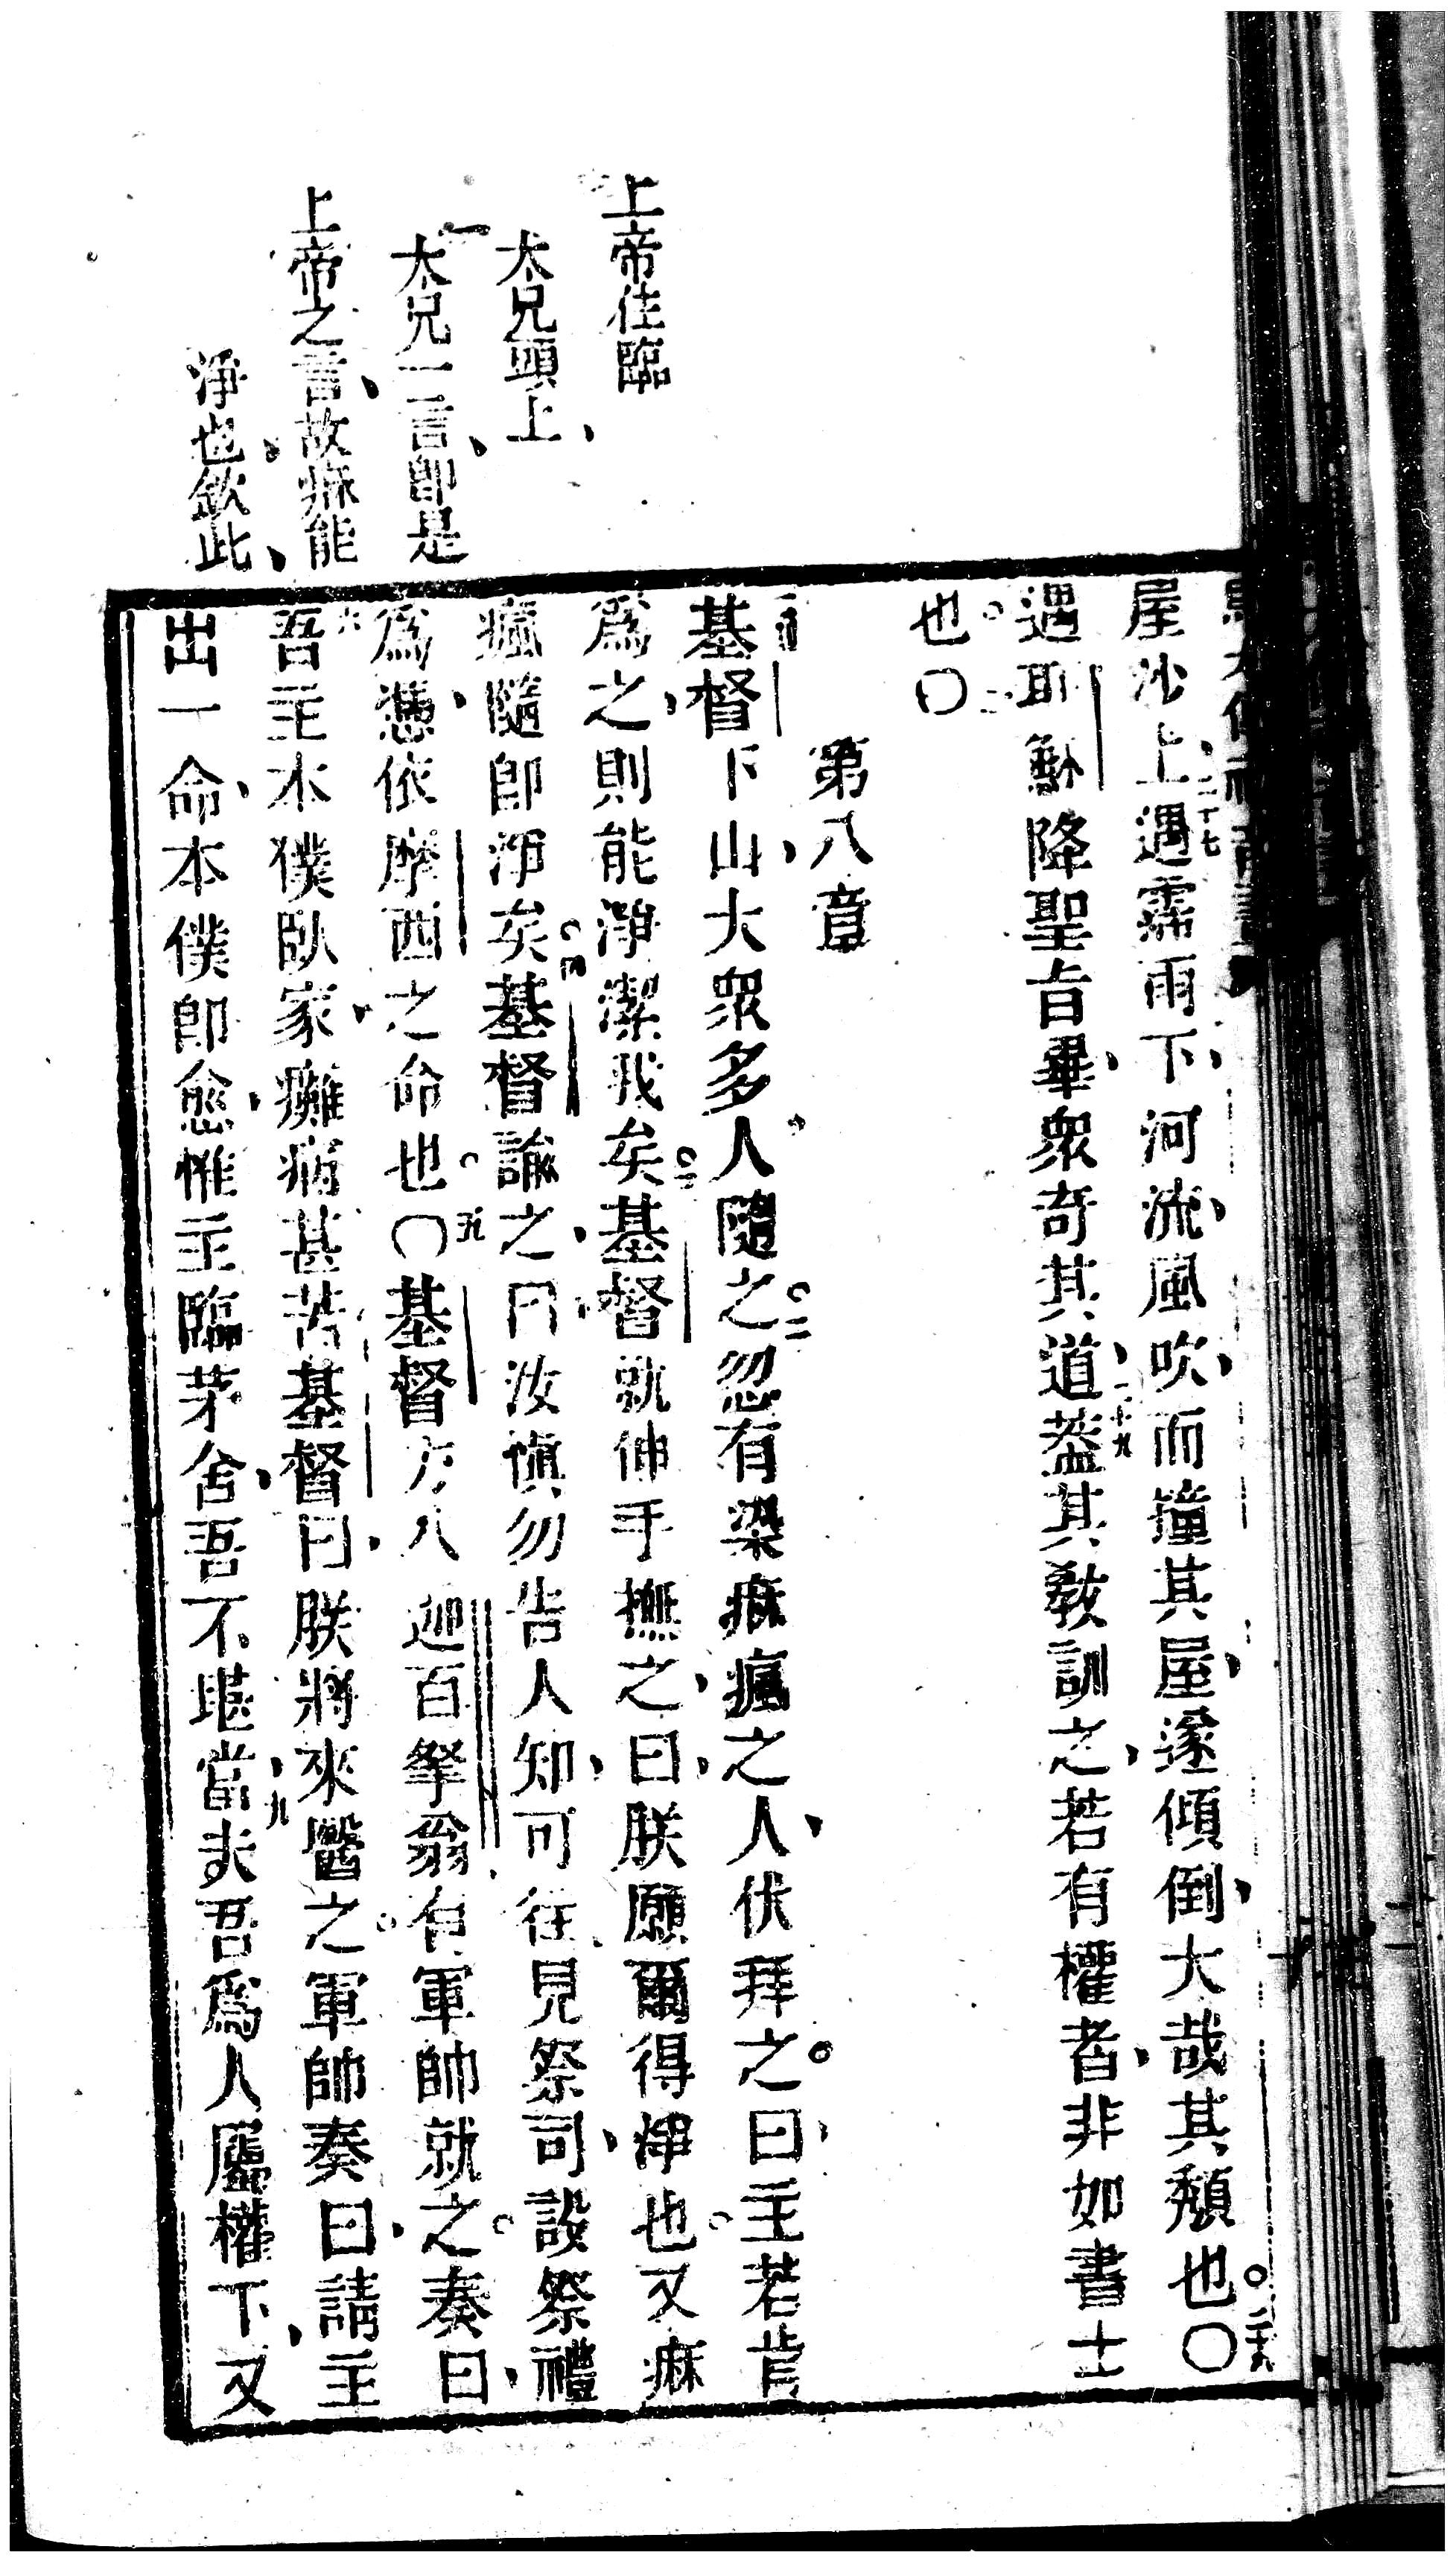 上帝住臨
大兄頭上、
大兄一言即是、
上帝之言、故痲能
淨也、欽此、
屋沙上、遇霈雨下、河流、風吹、而撞其屋、遂傾倒、大哉其頽也。〇
遇耶穌降聖旨畢、衆奇其道、蓋其教訓之、若有權者、非如書士
也。〇
第八章
基督下山、大衆多人隨之。忽有染痲瘋之人、伏拜之。曰、主若肯
爲之、則能淨潔我矣。基督就伸手撫之、曰、朕願爾得淨也。又痲
瘋隨即淨矣。基督諭之、曰、汝愼勿告人知、可往見祭司、設祭禮
爲憑、依摩西之命也。〇基督方入迦百拏翁、有軍帥就之。奏曰、
吾主、本僕臥家、癱病甚苦、基督曰、朕將來醫之。軍帥奏曰、請主
出一命、本僕即愈、惟主臨茅舍、吾不堪當、夫吾爲人屬權下、又